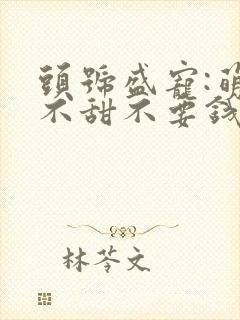 頭號盛寵:萌
不甜不要錢
林苓文